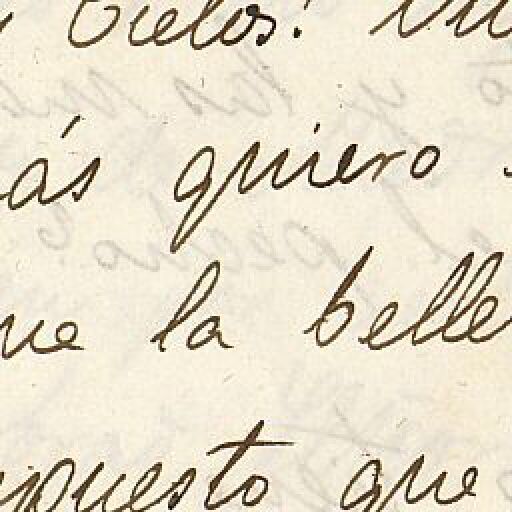 Cielos!
ás quiero
ue la belle
puesto que